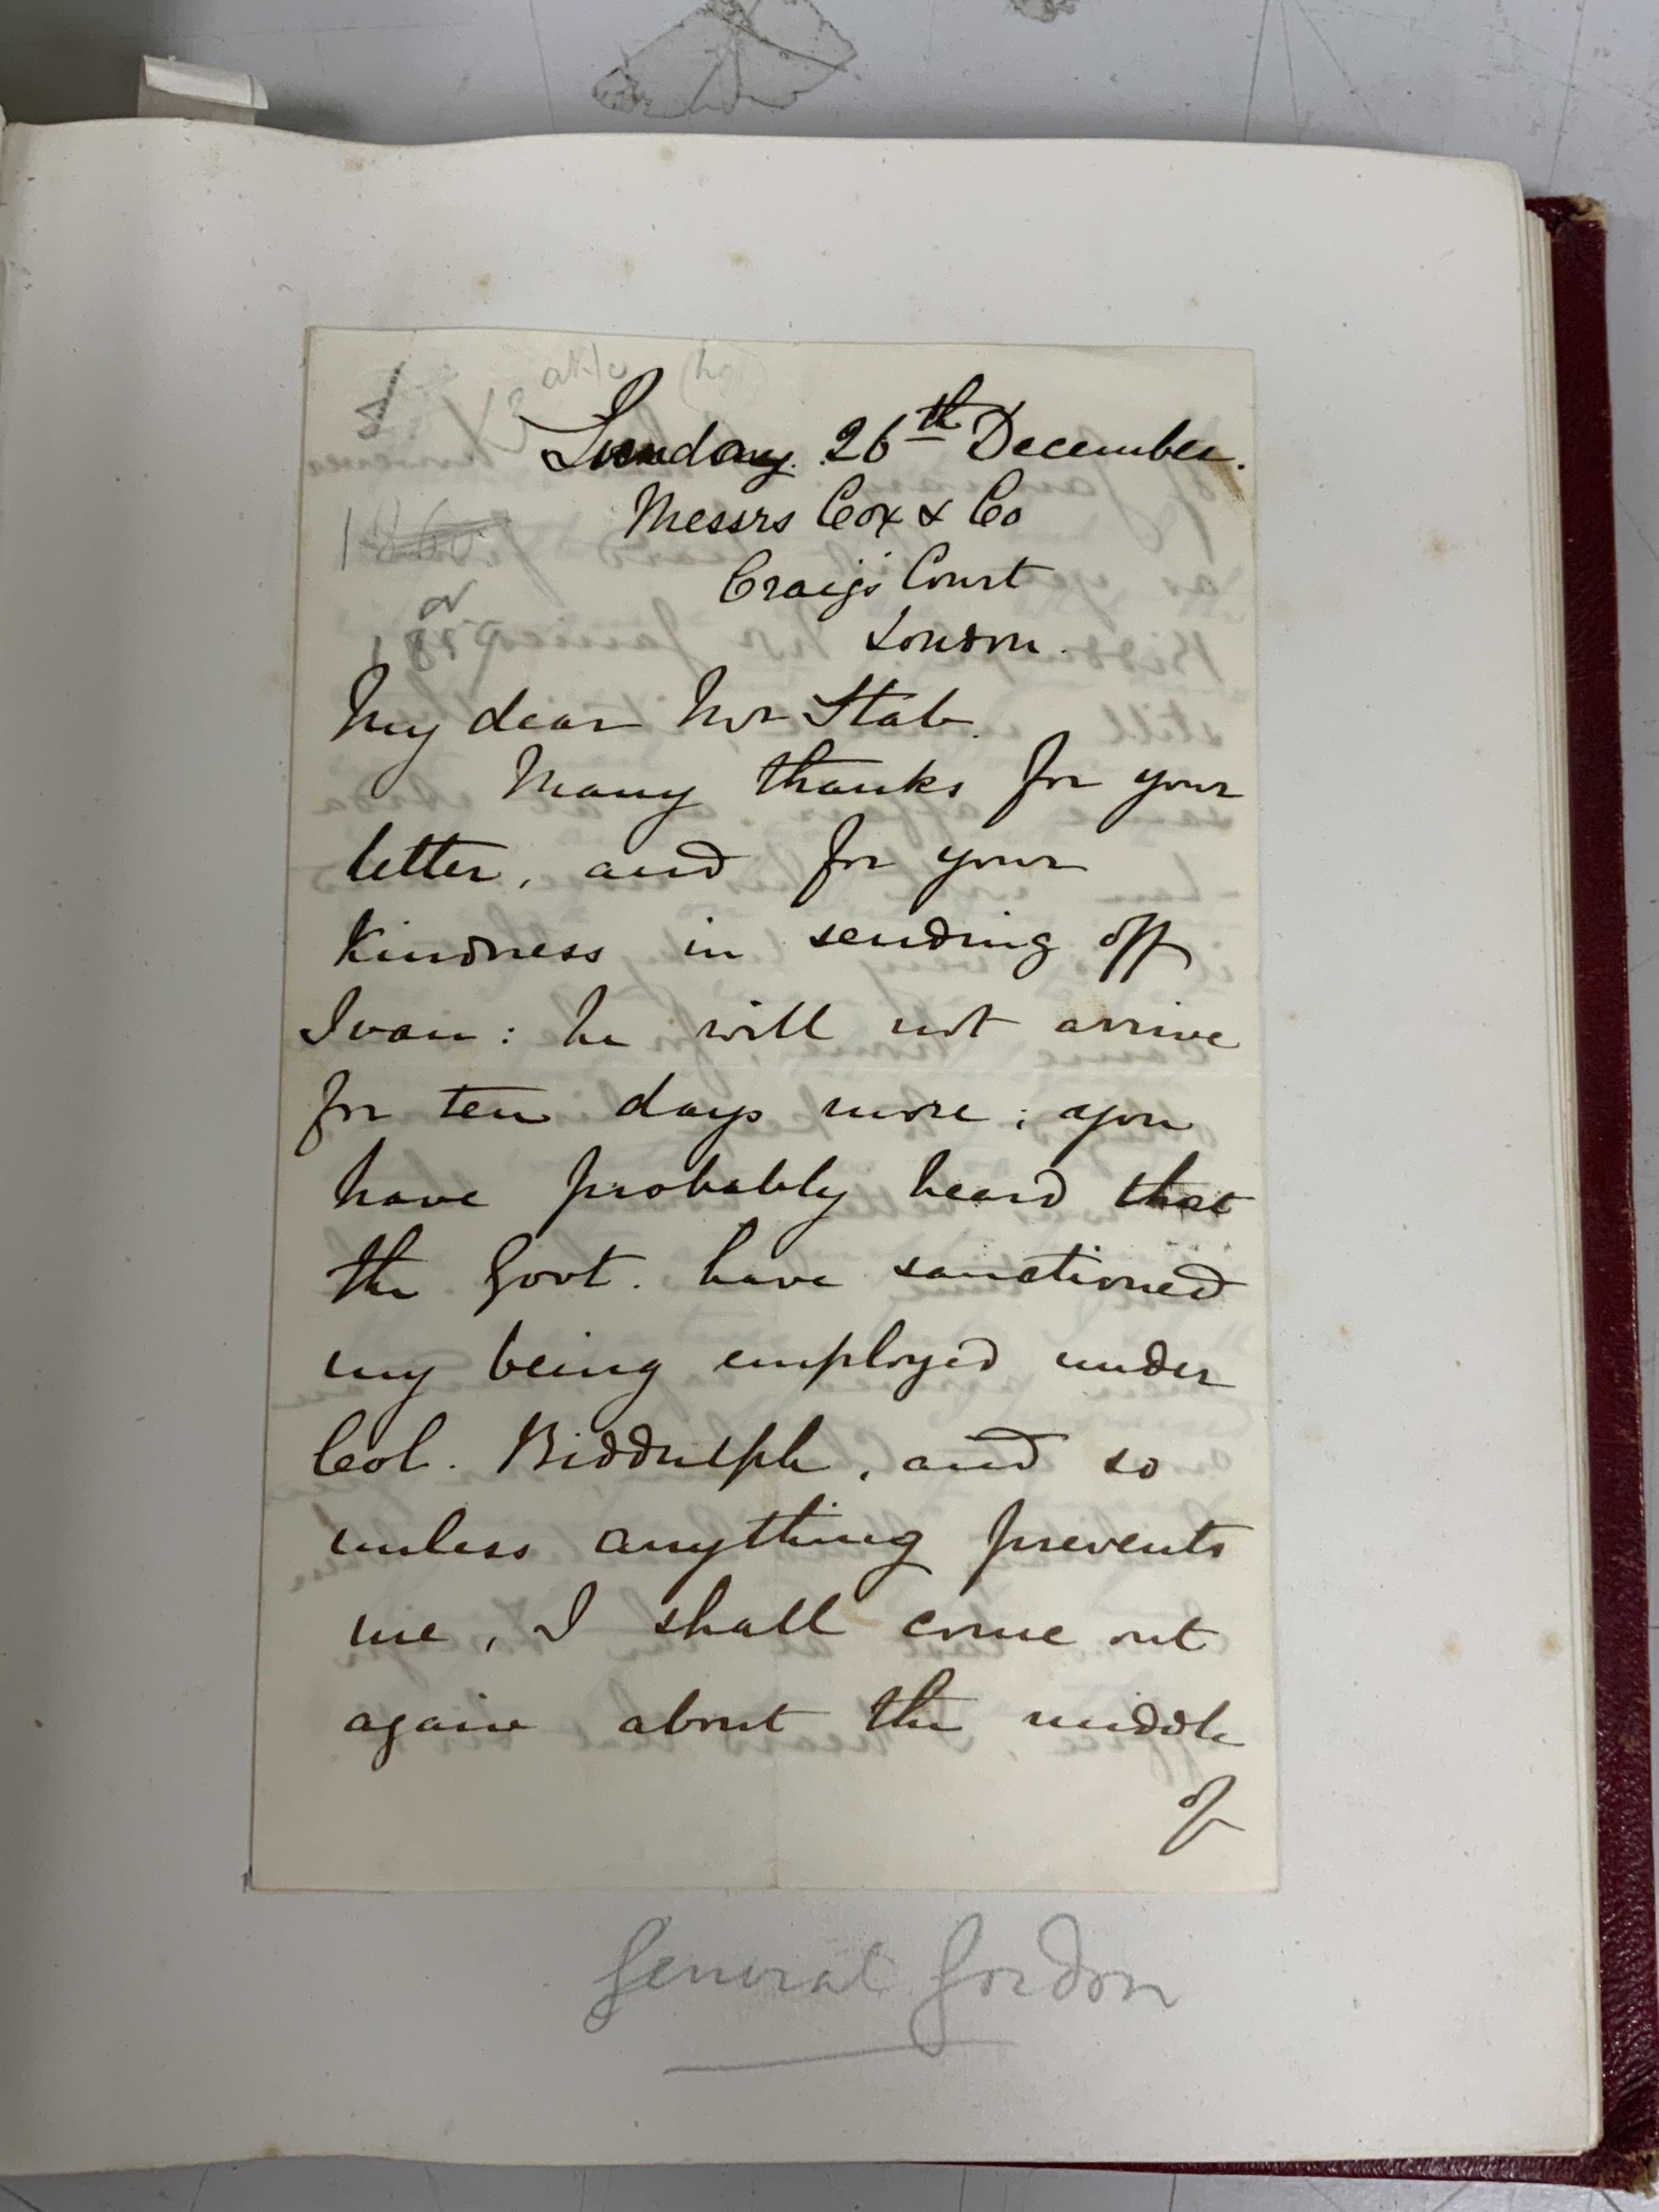 Sunday 26th December.
Messrs Cox & Co
Craigs Court
London.
My dear Mr Stab.
Many thanks for your
letter, and for your
Kindness in sending off
Ivan: he will not arrive
for ten days more; you
have probably heard that
the Govt. have sanctioned
my being employed under
Col. Biddulph, and so
unless anything prevents
me, I shall come out
again about the middle
of
General Gordon